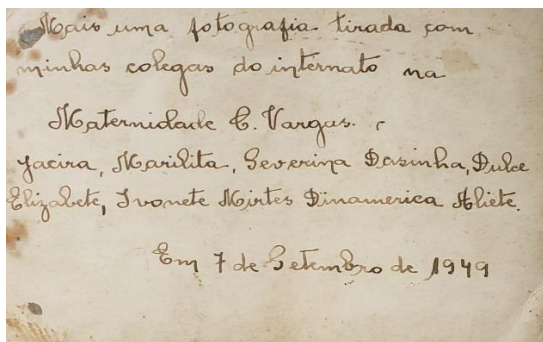 Mais uma fotografia tirada com
minhas colegas do internato na
Maternidade C. Vargas.
Jacira, Marilita, Severina Dasinha, Dulce
Elizabete, Ivonete Mirtes Dinamerica Aliete.
Em 7 de Setembro de 1949